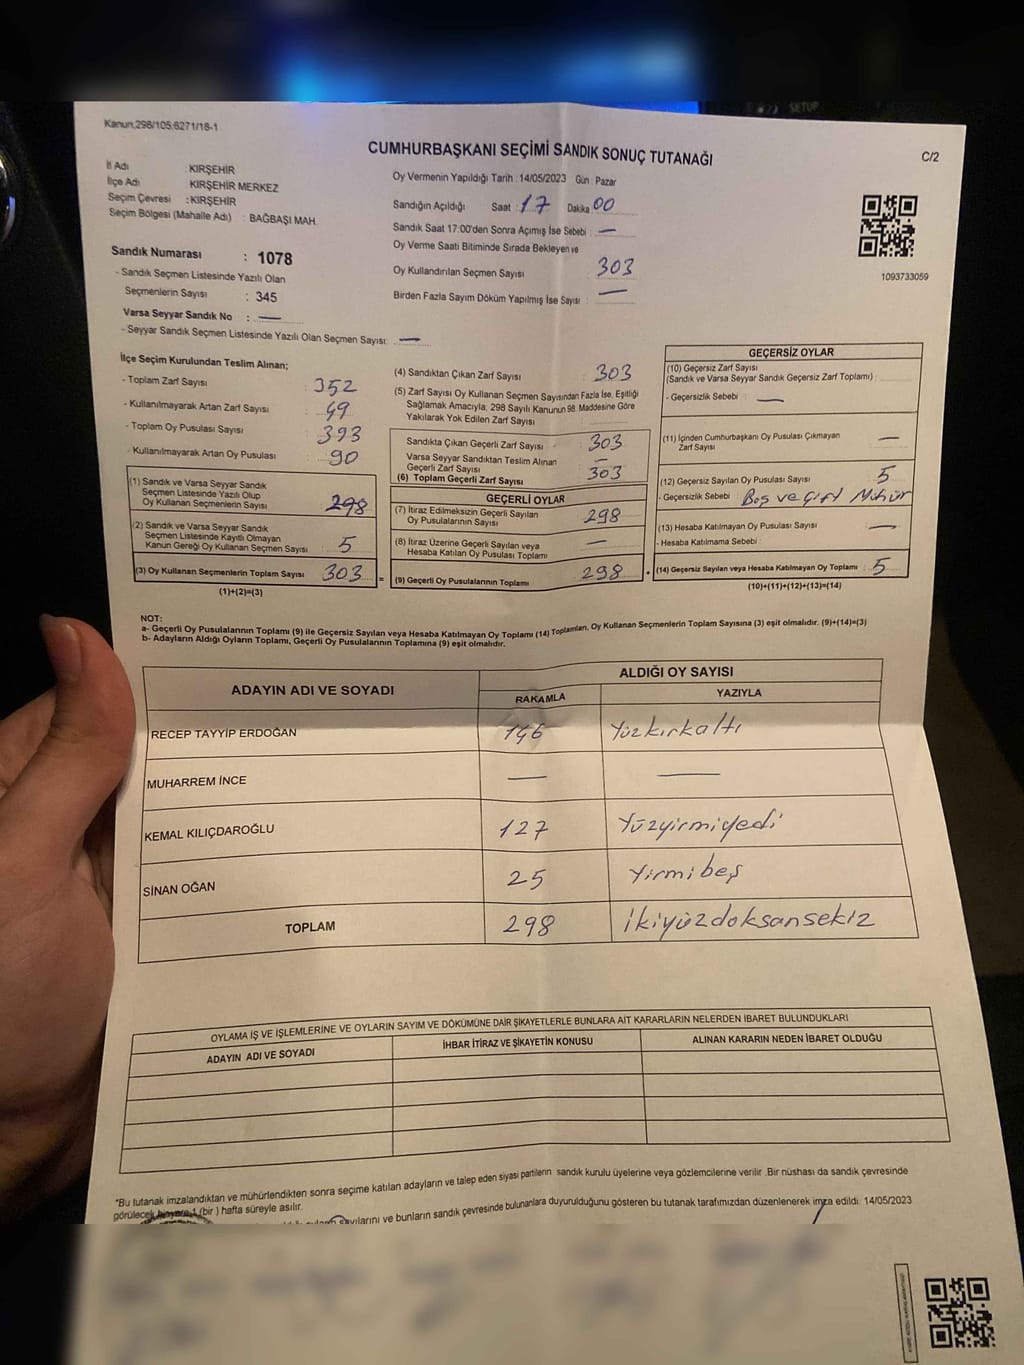 SETUP
Kanun,298/105;6271/18-1
CUMHURBAŞKANI SEÇİMİ SANDIK SONUÇ TUTANAĞI
C/2
İl Adı : KIRŞEHİR
İlçe Adı : KIRŞEHİR MERKEZ
Seçim Çevresi : KIRŞEHİR
Seçim Bölgesi (Mahalle Adı) : BAĞBAŞI MAH.
Sandık Numarası : 1078
- Sandık Seçmen Listesinde Yazılı Olan
Seçmenlerin Sayısı : 345
Varsa Seyyar Sandık No : —
- Seyyar Sandık Seçmen Listesinde Yazılı Olan Seçmen Sayısı: —
Oy Vermenin Yapıldığı Tarih : 14/05/2023 Gün : Pazar
Sandığın Açıldığı Saat : 17 Dakika 00
Sandık Saat 17:00'den Sonra Açımış İse Sebebi : —
Oy Verme Saati Bitiminde Sırada Bekleyen ve
Oy Kullandırılan Seçmen Sayısı 303
Birden Fazla Sayım Döküm Yapılmış İse Sayısı : —
1093733059
İlçe Seçim Kurulundan Teslim Alınan;
- Toplam Zarf Sayısı 352
- Kullanılmayarak Artan Zarf Sayısı 49
- Toplam Oy Pusulası Sayısı 393
- Kullanılmayarak Artan Oy Pusulası 90
(1) Sandık ve Varsa Seyyar Sandık
Seçmen Listesinde Yazılı Olup
Oy Kullanan Seçmenlerin Sayısı 298
(2) Sandık ve Varsa Seyyar Sandık
Seçmen Listesinde Kayıtlı Olmayan
Kanun Gereği Oy Kullanan Seçmen Sayısı 5
(3) Oy Kullanan Seçmenlerin Toplam Sayısı 303 =
(1)+(2)=(3)
(4) Sandıktan Çıkan Zarf Sayısı 303
(5) Zarf Sayısı Oy Kullanan Seçmen Sayısından Fazla İse, Eşitliği
Sağlamak Amacıyla, 298 Sayılı Kanunun 98. Maddesine Göre
Yakılarak Yok Edilen Zarf Sayısı :
Sandıkta Çıkan Geçerli Zarf Sayısı : 303
Varsa Seyyar Sandıktan Teslim Alınan
Geçerli Zarf Sayısı : —
(6) Toplam Geçerli Zarf Sayısı : 303
GEÇERLİ OYLAR
(7) İtiraz Edilmeksizin Geçerli Sayılan
Oy Pusulalarının Sayısı : 298
(8) İtiraz Üzerine Geçerli Sayılan veya
Hesaba Katılan Oy Pusulası Toplamı : —
(9) Geçerli Oy Pusulalarının Toplamı : 298
GEÇERSİZ OYLAR
(10) Geçersiz Zarf Sayısı
(Sandık ve Varsa Seyyar Sandık Geçersiz Zarf Toplamı) :
- Geçersizlik Sebebi : —
(11) İçinden Cumhurbaşkanı Oy Pusulası Çıkmayan
Zarf Sayısı : —
(12) Geçersiz Sayılan Oy Pusulası Sayısı : 5
- Geçersizlik Sebebi : Boş ve Çift Mühür
(13) Hesaba Katılmayan Oy Pusulası Sayısı : —
- Hesaba Katılmama Sebebi :
(14) Geçersiz Sayılan veya Hesaba Katılmayan Oy Toplamı : 5
(10)+(11)+(12)+(13)=(14)
NOT:
a- Geçerli Oy Pusulalarının Toplamı (9) ile Geçersiz Sayılan veya Hesaba Katılmayan Oy Toplamı (14) Toplamları, Oy Kullanan Seçmenlerin Toplam Sayısına (3) eşit olmalıdır. (9)+(14)=(3)
b- Adayların Aldığı Oyların Toplamı, Geçerli Oy Pusulalarının Toplamına (9) eşit olmalıdır.
ADAYIN ADI VE SOYADI
ALDIĞI OY SAYISI
RAKAMLA YAZIYLA
RECEP TAYYİP ERDOĞAN 146 Yüzkırkaltı
MUHARREM İNCE — —
KEMAL KILIÇDAROĞLU 127 Yüzyirmiyedi
SİNAN OĞAN 25 Yirmibeş
TOPLAM 298 İkiyüzdoksansekiz
OYLAMA İŞ VE İŞLEMLERİNE VE OYLARIN SAYIM VE DÖKÜMÜNE DAİR ŞİKAYETLERLE BUNLARA AİT KARARLARIN NELERDEN İBARET BULUNDUKLARI
ADAYIN ADI VE SOYADI İHBAR İTİRAZ VE ŞİKAYETİN KONUSU ALINAN KARARIN NEDEN İBARET OLDUĞU
*Bu tutanak imzalandıktan ve mühürlendikten sonra seçime katılan adayların ve talep eden siyasi partilerin sandık kurulu üyelerine veya gözlemcilerine verilir .Bir nüshası da sandık çevresinde
görülecek bir yere 1 (bir ) hafta süreyle asılır.
sayılarını ve bunların sandık çevresinde bulunanlara duyurulduğunu gösteren bu tutanak tarafımızdan düzenlenerek imza edildi. 14/05/2023